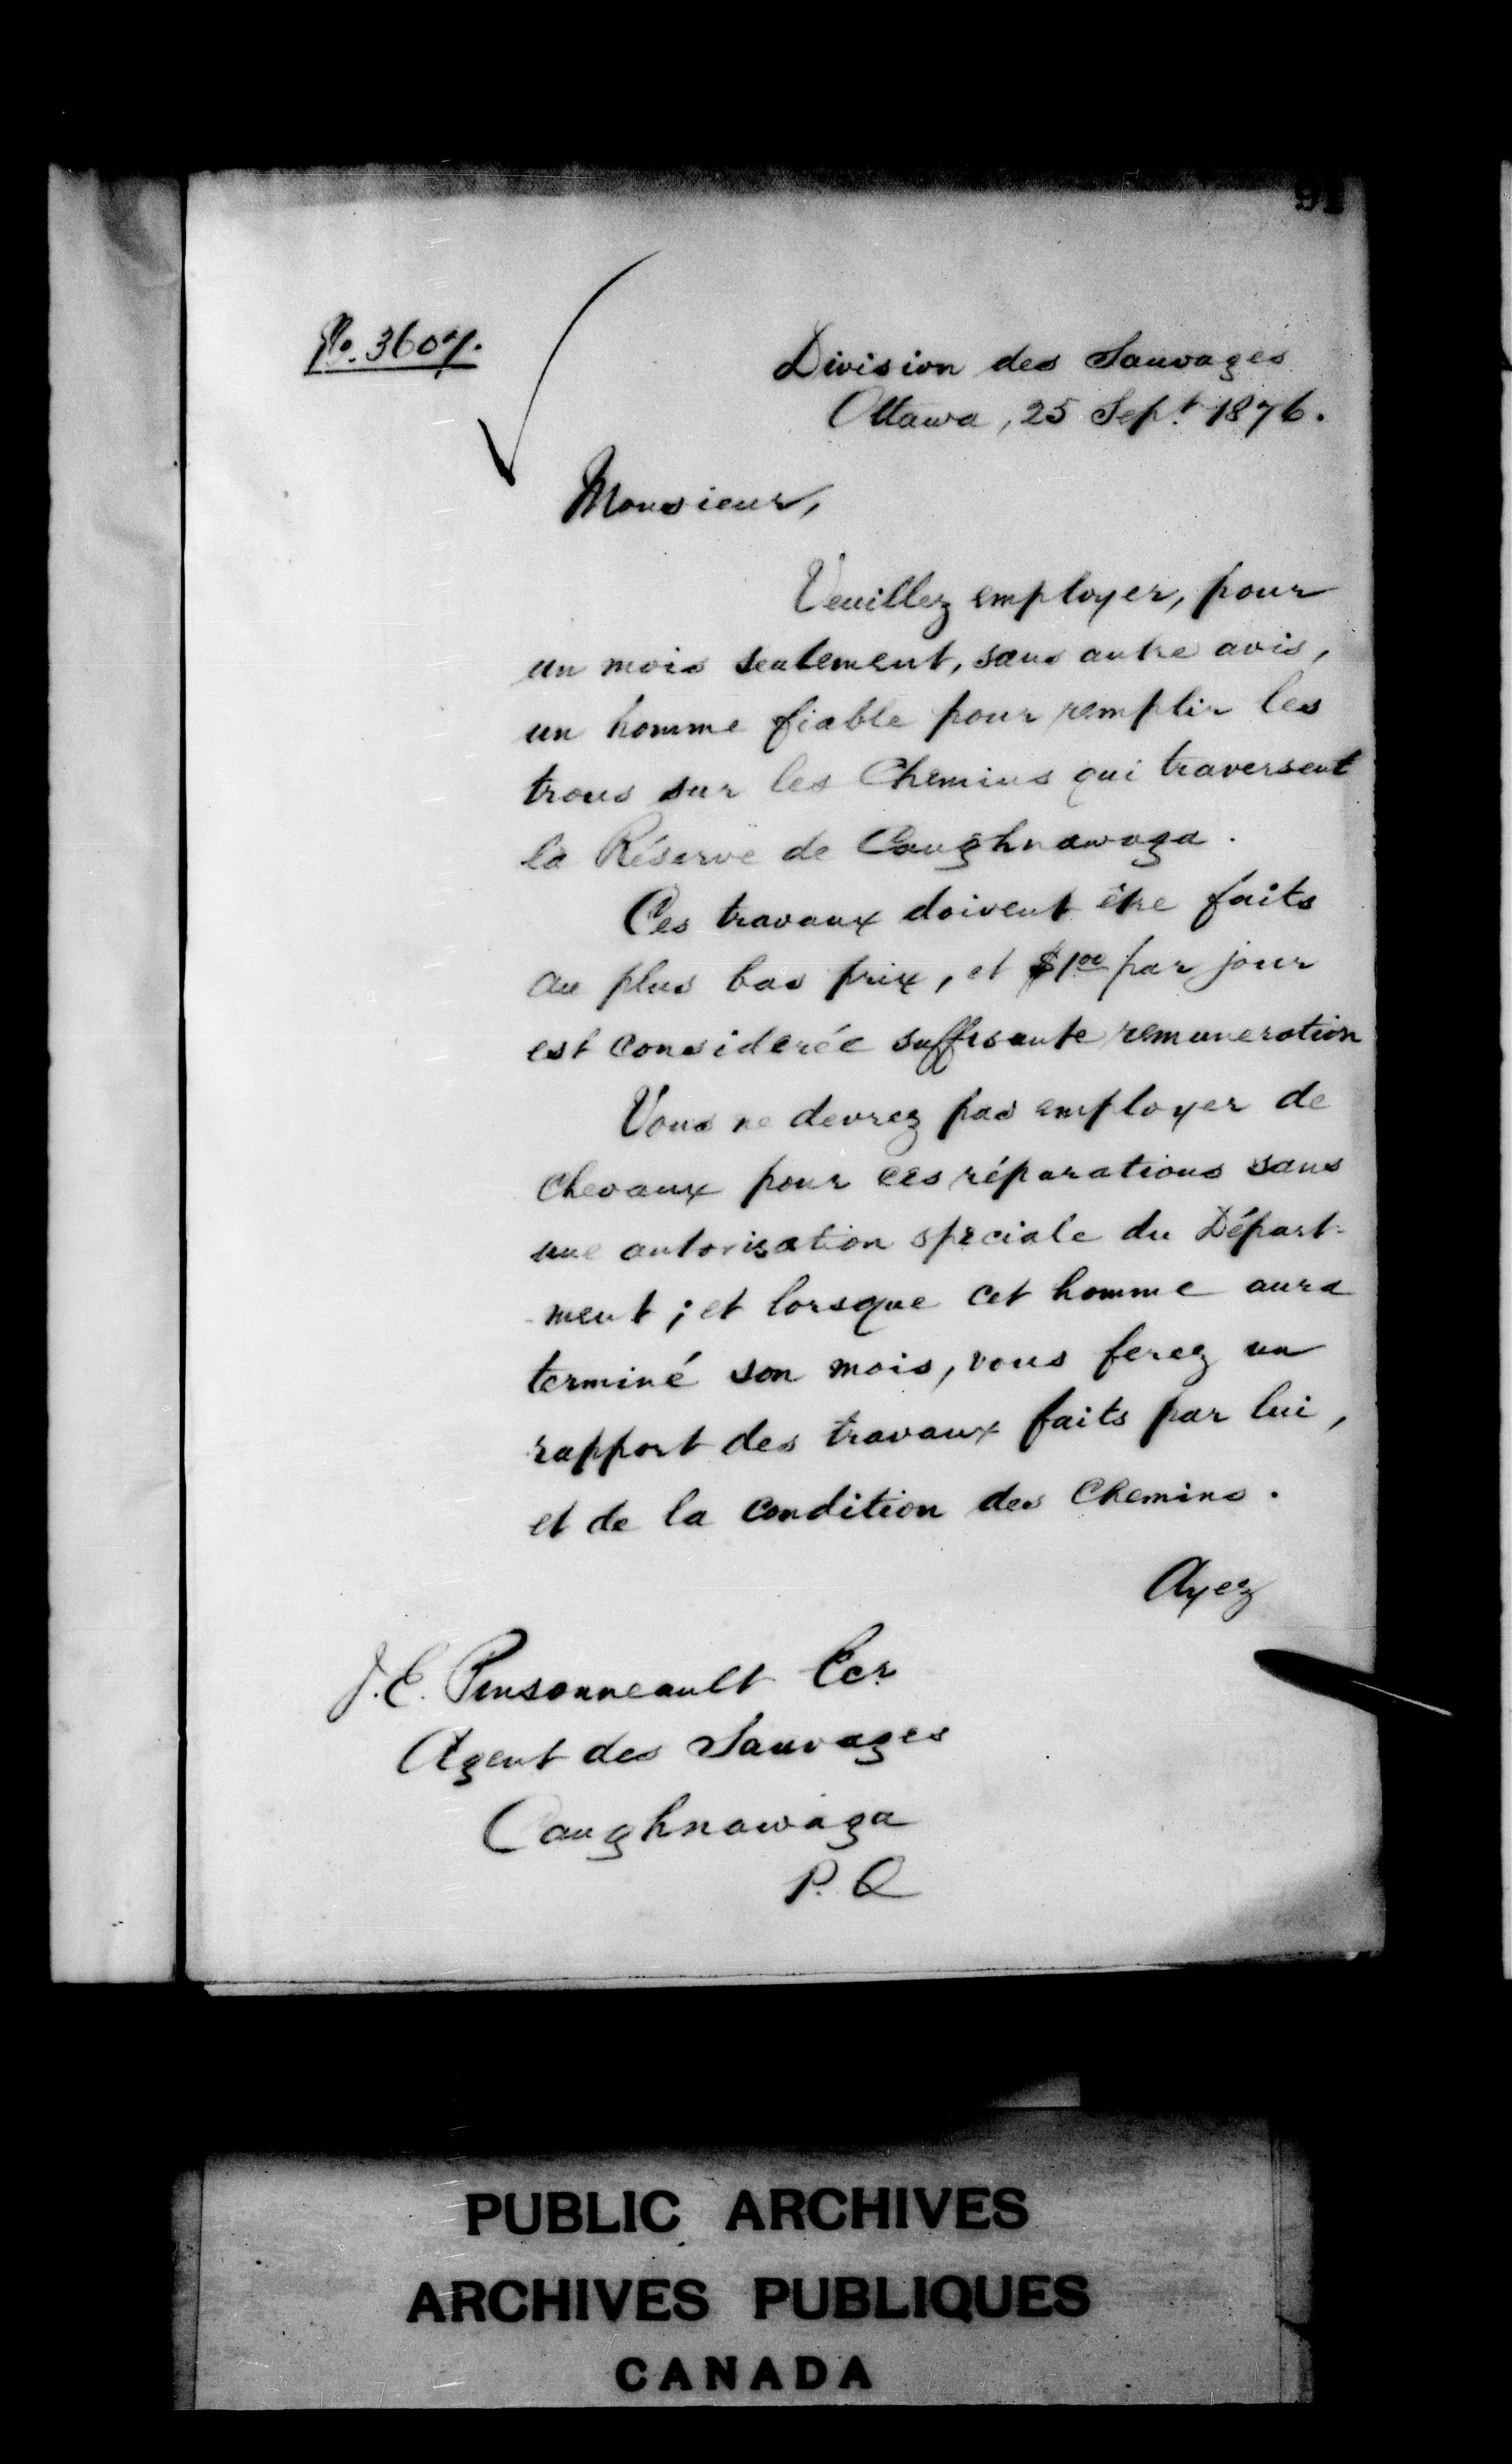 91
No. 3607.
Division des Sauvages
Ottawa, 25 Sept. 1876.
Monsieur,
Veuillez employer, pour
un mois seulement, sans autre avis,
un homme fiable pour remplir les
trous sur les Chemins qui traversent
la Réserve de Caughnawaga.
Ces travaux doivent être faits
au plus bas prix, et $1.00 par jour
est considerée suffisante remuneration
Vous ne devrez pas employer de
chevaux pour ces réparations sans
une autorisation speciale du Départ-
-ment ; et lorsque cet homme aura
terminé son mois, vous ferez un
rapport des travaux faits par lui,
et de la condition des Chemins.
Ayez
J. E. Pinsonneault Ecr
Agent des Sauvages
Caughnawaga
P. Q
PUBLIC ARCHIVES
ARCHIVES PUBLIQUES
CANADA